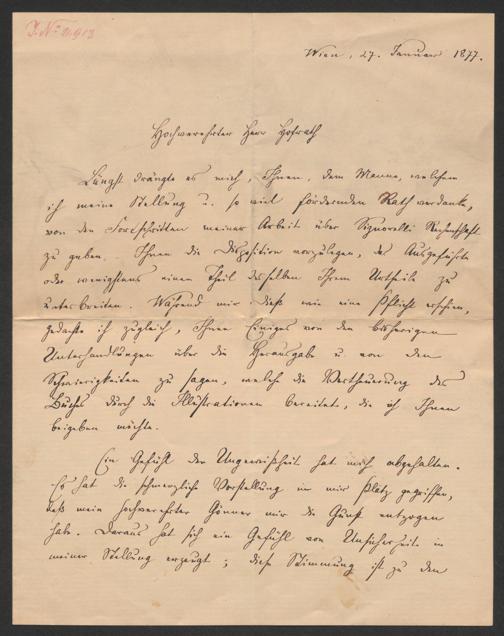 J. N° 11.913
Wien, 27. Januar 1877.
Hochverehrter Herr Hofrath
Längst drängte es mich, Ihnen, dem Manne, welchem
ich meine Stellung u. so viel fördernden Rath verdanke,
von den Fortschritten meiner Arbeit über Signorelli Rechenschaft
zu geben. Ihnen die Disposition vorzulegen, das Ausgeführte
oder wenigstens einen Theil desselben Ihrem Urtheile zu
unterbreiten. Während mir dieß wie eine Pflicht erschien,
gedachte ich zugleich, Ihnen Einiges von den bisherigen
Unterhandlungen über die Herausgabe u. von den
Schwierigkeiten zu sagen, welche die Vertheuerung des
Buches durch die Illustrationen bereitete, die ich Ihnen
beigeben möchte.
Ein Gefühl der Ungewißheit hat mich abgehalten.
Es hat die schmerzliche Vorstellung in mir Platz gegriffen,
daß mein hochverehrter Gönner mir die Gunst entzogen
habe. Daraus hat sich ein Gefühl von Unsicherheit in
meiner Stellung erzeugt; diese Stimmung ist zu den